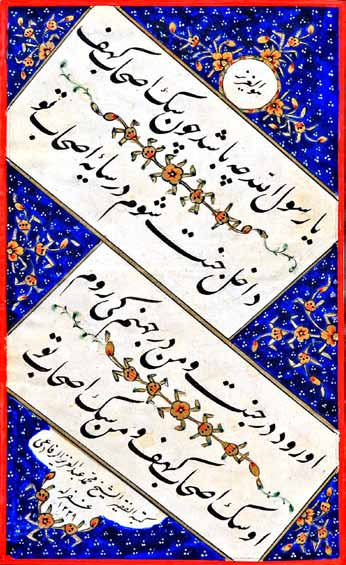 یا رسول الله چه باشد چون سگ اصحاب کهف
داخل جنت شوم در سایه اصحاب تو
او رود در جنت و من در جهنم کی روم
او سگ اصحاب کهف و من سگ اصحاب تو
كتبه الفقير الشيخ محمد عبد العزيز الرفاعي
غفر له